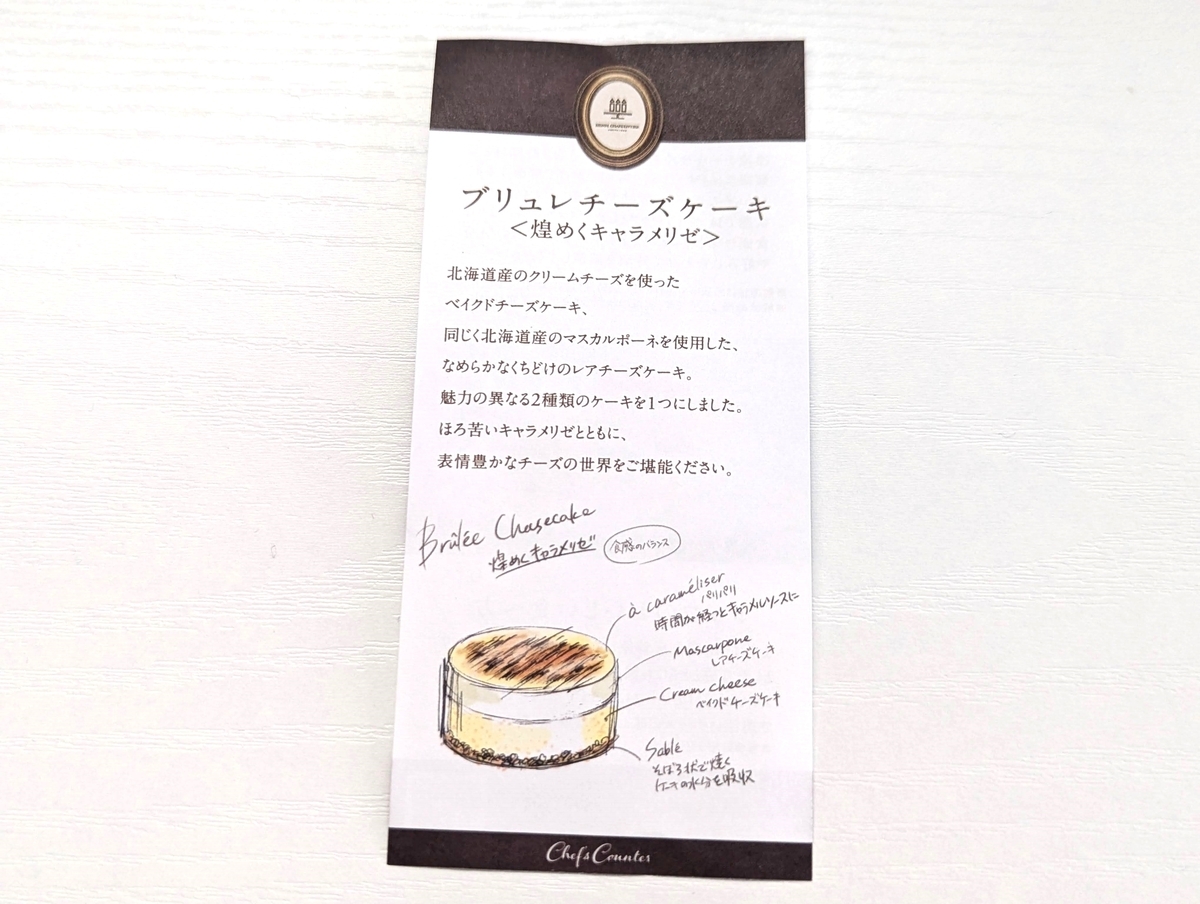 ブリュレチーズケーキ
＜煌めくキャラメリゼ＞
北海道産のクリームチーズを使った
ベイクドチーズケーキ、
同じく北海道産のマスカルポーネを使用した、
なめらかなくちどけのレアチーズケーキ。
魅力の異なる2種類のケーキを1つにしました。
ほろ苦いキャラメリゼとともに、
表情豊かなチーズの世界をご堪能ください。
Brûlée Chasecake
煌めくキャラメリゼ
食感のバランス
à caraméliser
パリパリ
時間が経つとキャラメルソースに
Mascarpone
レアチーズケーキ
Cream cheese
ベイクドチーズケーキ
Sable
そぼろ状で焼く
ケーキの水分を吸収
Chef's Counter